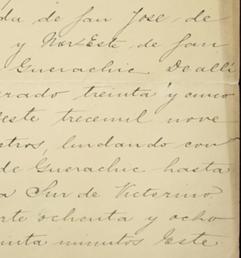 da de San José de
y Nor Este de San
Guerachic. De allí
rado treinta y cinco
este trecemil nove
tros, lindando con
de Guerachic hasta
a Sur de Victorino
rte ochenta y ocho
inta minutos Este